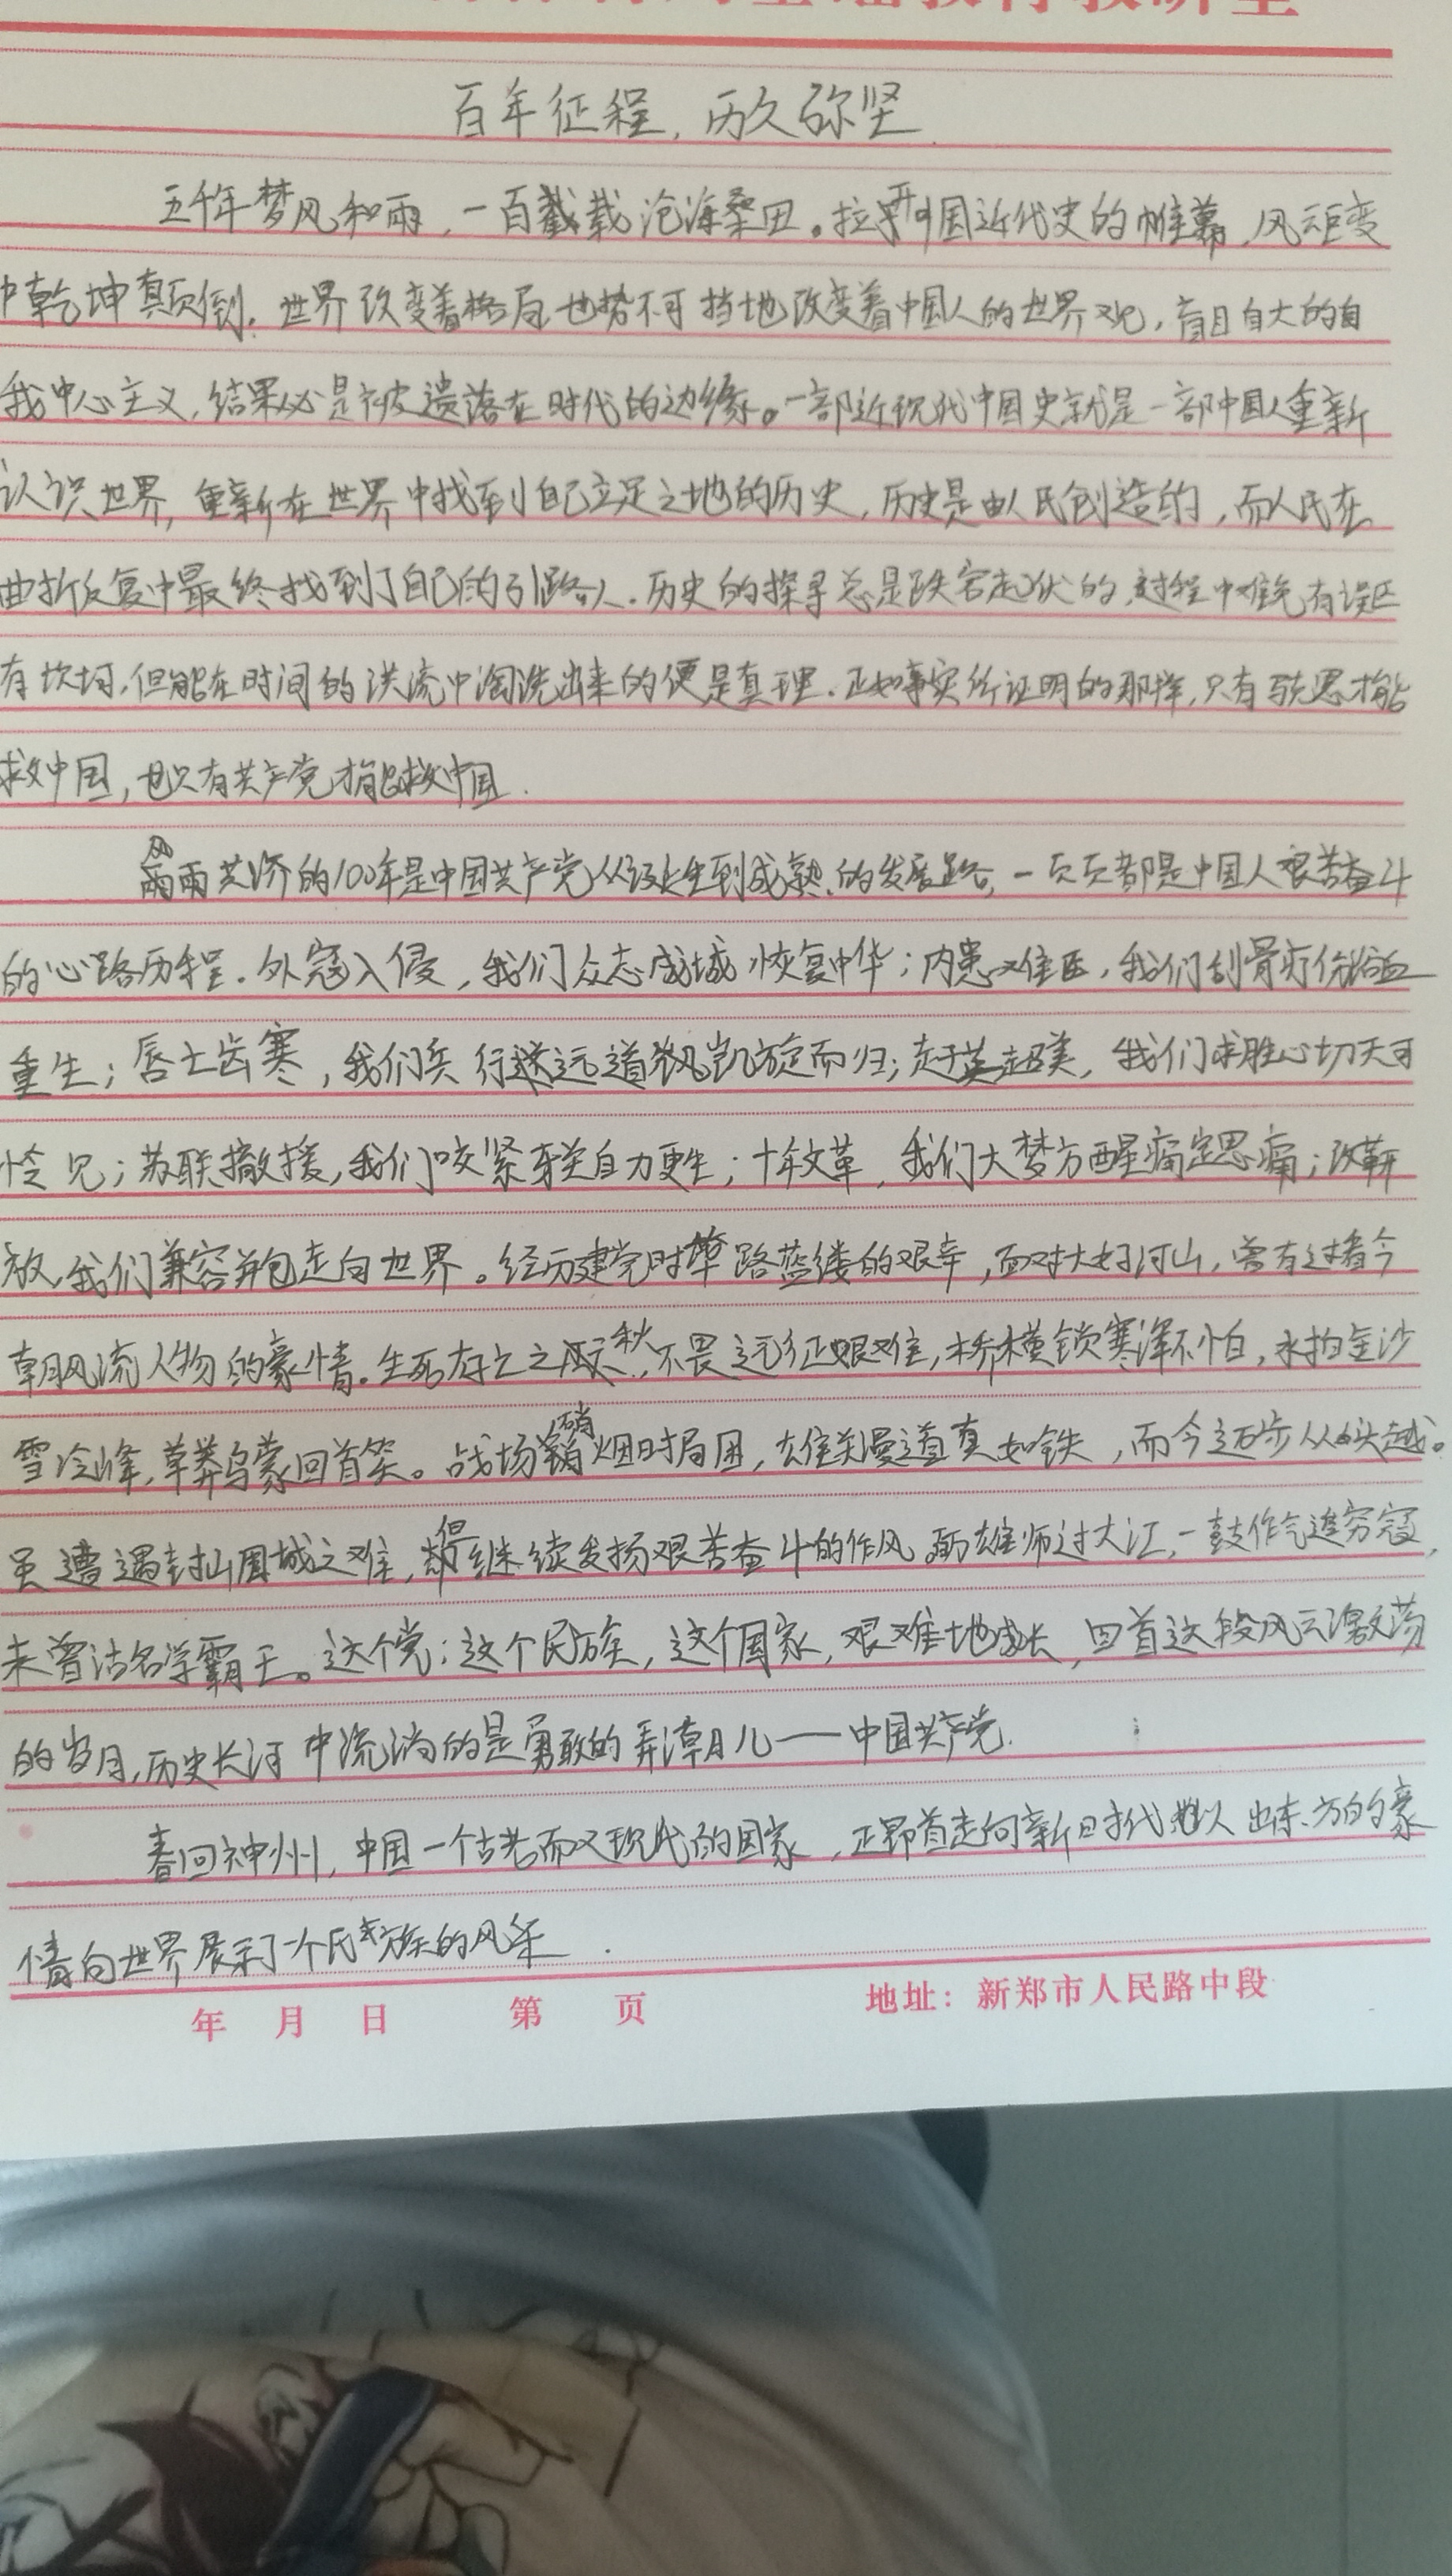 百年征程，历久弥坚
五千年梦风和雨，一百载沧海桑田。拉开中国近代史的帷幕，风云巨变
中乾坤颠倒，世界改变着格局也势不可挡地改变着中国人的世界观，盲目自大的自
我中心主义，结果必是被遗落在时代的边缘。一部近现代中国史就是一部中国人重新
认识世界，重新在世界中找到自己立足之地的历史，历史是由人民创造的，而人民在
曲折反复中最终找到了自己的引路人．历史的探寻总是跌宕起伏的，过程中难免有误区
有坎坷，但能在时间的洪流中淘洗出来的便是真理．正如事实所证明的那样，只有马克思才能
救中国，也只有共产党才能救中国．
风雨共济的100年是中国共产党从诞生到成熟的发展路，一页页都是中国人艰苦奋斗
的心路历程．外寇入侵，我们众志成城恢复中华；内患难医，我们刮骨疗伤浴血
重生；唇亡齿寒，我们兵行远道凯旋而归；赶英超美，我们求胜心切天可
怜见；苏联撤援，我们咬紧牙关自力更生；十年文革，我们大梦方醒痛定思痛；改革开
放，我们兼容并包走向世界。经历建党时筚路蓝缕的艰辛，面对大好河山，曾有过看今
朝风流人物的豪情．生死存亡之秋，不畏远征艰难，桥横锁寒泽不怕，水拍金沙
雪冷峰，草莽乌蒙回首笑。战场硝烟时局困，雄关漫道真如铁，而今迈步从头越。
虽遭遇封山围城之难，却继续发扬艰苦奋斗的作风．雄师过大江，一鼓作气追穷寇，
未曾沽名学霸王。这个党；这个民族，这个国家，艰难地成长，回首这段风云激荡
的岁月，历史长河中流淌的是勇敢的弄潮儿——中国共产党．
春回神州，中国一个古老而又现代的国家，正昂首走向新时代，以出东方的豪
情向世界展示了一个民族的风采．
年 月 日 第 页 地址：新郑市人民路中段